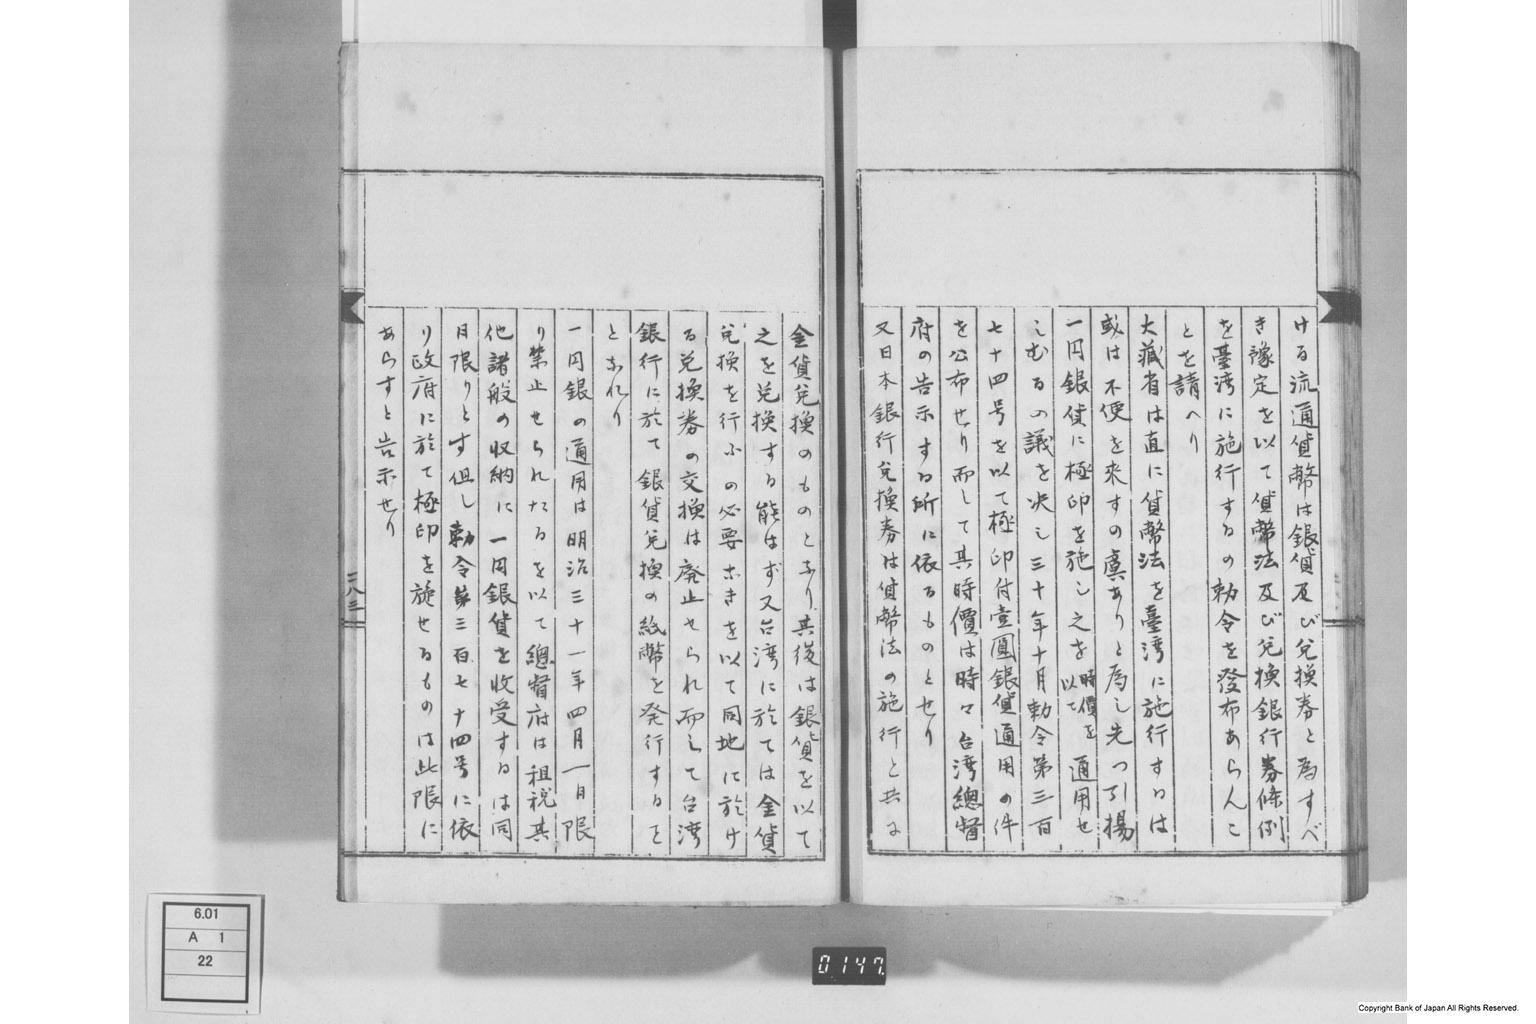 ける流通貨幣は銀貨及び兌換券と為すべ
き豫定を以て貨幣法及び兌換銀行券條例
を臺湾に施行するの勅令を発布あらんこ
とを請へり
大藏省は直に貨幣法を臺湾に施行するは
或は不便を来すの虞ありと為し先つ引揚
一円銀貨に極印を施し之を時價を以て通用せ
しむるの議を决し三十年十月勅令第三百
七十四号を以て極印付壹圓銀貨通用の件
を公布せり而して其時價は時々台湾總督
府の告示する所に依るものとせり
又日本銀行兌換券は貨幣法の施行と共に
金貨兌換のものとなり其後は銀貨を以て
之を兌換する能はず又台湾に於ては金貨
兌換を行ふの必要なきを以て同地に於け
る兌換券の交換は廃止せられ而して台湾
銀行に於て銀貨兌換の紙幣を発行するこ
となれり
一円銀の通用は明治三十一年四月一日限
り禁止せられたるを以て總督府は租税其
他諸般の収納に一円銀貨を收受するは同
日限りとす但し勅令第三百七十四号に依
り政府に於て極印を施せるものは此限に
あらすと告示せり
二八三
6.01
A 1
22
0147
Copyright Bank of Japan All Rights Reserved.